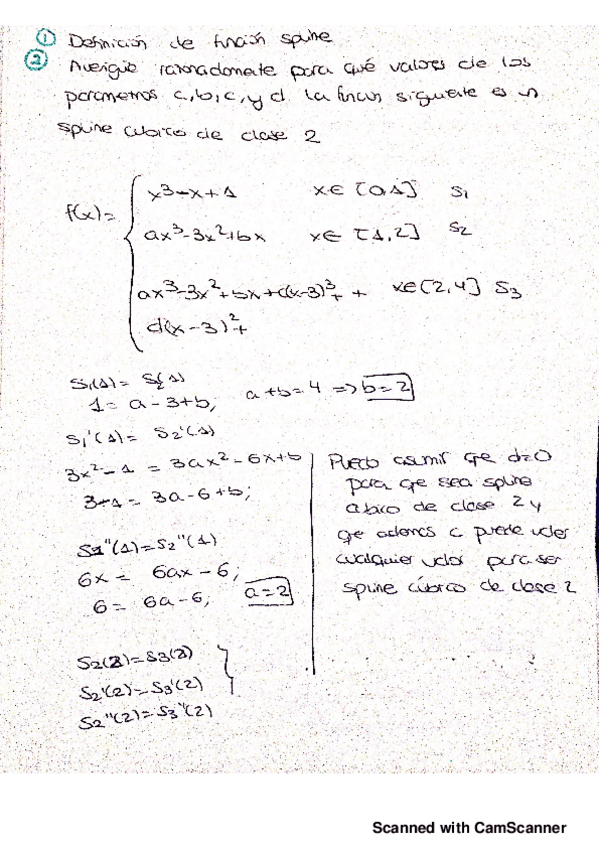 ① Definición de función spline
② Averigüe razonadamente para qué valores de los
parametros a, b, c, y d la función siguiente es un
spline cúbico de clase 2
x³-x+1 x∈[0,1] S₁
f(x)= ax³-3x²+bx x∈[1,2] S₂
ax³-3x²+bx+c(x-3)³₊ + x∈[2,4] S₃
d(x-3)²₊
S₁(1)= S₂(1)
1= a-3+b; a+b=4 => b=2
S₁'(1)= S₂'(1)
3x²-1 = 3ax²-6x+b
3-1 = 3a-6+b;
S₁''(1)=S₂''(1)
6x= 6ax-6;
6= 6a-6; a=2
S₂(2)=S₃(2)
S₂'(2)=S₃'(2)
S₂''(2)=S₃''(2)
Puedo asumir que d=0
para que sea spline
cúbico de clase 2 y
que además c puede valer
cualquier valor para ser
spline cúbico de clase 2
Scanned with CamScanner